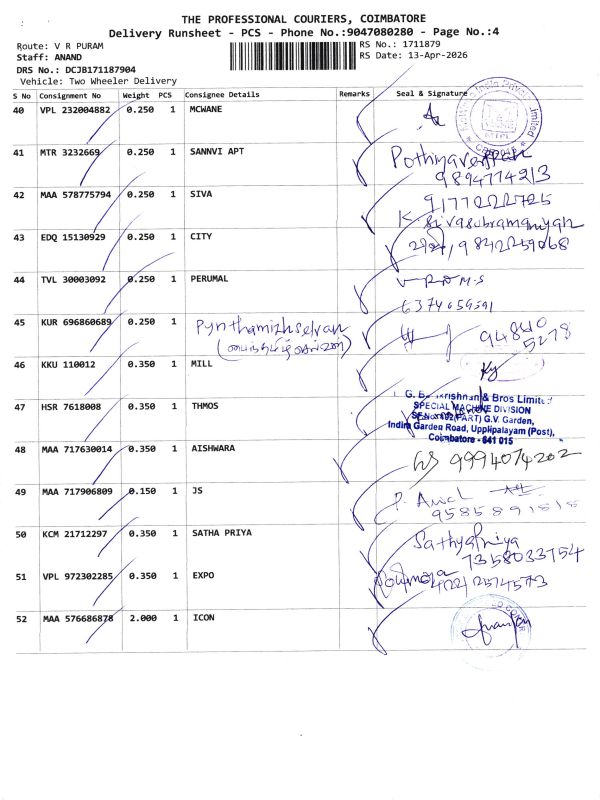 THE PROFESSIONAL COURIERS, COIMBATORE
Delivery Runsheet - PCS - Phone No.:9047080280 - Page No.:4
Route: V R PURAM
RS No.: 1711879
Staff: ANAND
RS Date: 13-Apr-2026
DRS No.: DCJB171187904
Vehicle: Two Wheeler Delivery
S No Consignment No Weight PCS Consignee Details Remarks Seal & Signature
40 VPL 232004882 0.250 1 MCWANE
41 MTR 3232669 0.250 1 SANNVI APT
9894774213
42 MAA 578775794 0.250 1 SIVA
9177222725
K. Sivasubramaniyan
43 EDQ 15130929 0.250 1 CITY
9842259068
44 TVL 30003092 0.250 1 PERUMAL
6374059591
45 KUR 696860689 0.250 1 Pynthamizhselvan
94840
5278
46 KKU 110012 0.350 1 MILL
47 HSR 7618008 0.350 1 THMOS
& Bros Limited
SPECIAL MACHINE DIVISION
G.V. Garden,
Indira Garden Road, Upplipalayam (Post),
Coimbatore - 641 015
48 MAA 717630014 0.350 1 AISHWARA
9994074202
49 MAA 717906809 0.150 1 JS
9585891818
50 KCM 21712297 0.350 1 SATHA PRIYA
Sathyapriya
7358033754
51 VPL 972302285 0.350 1 EXPO
4224574573
52 MAA 576686878 2.000 1 ICON